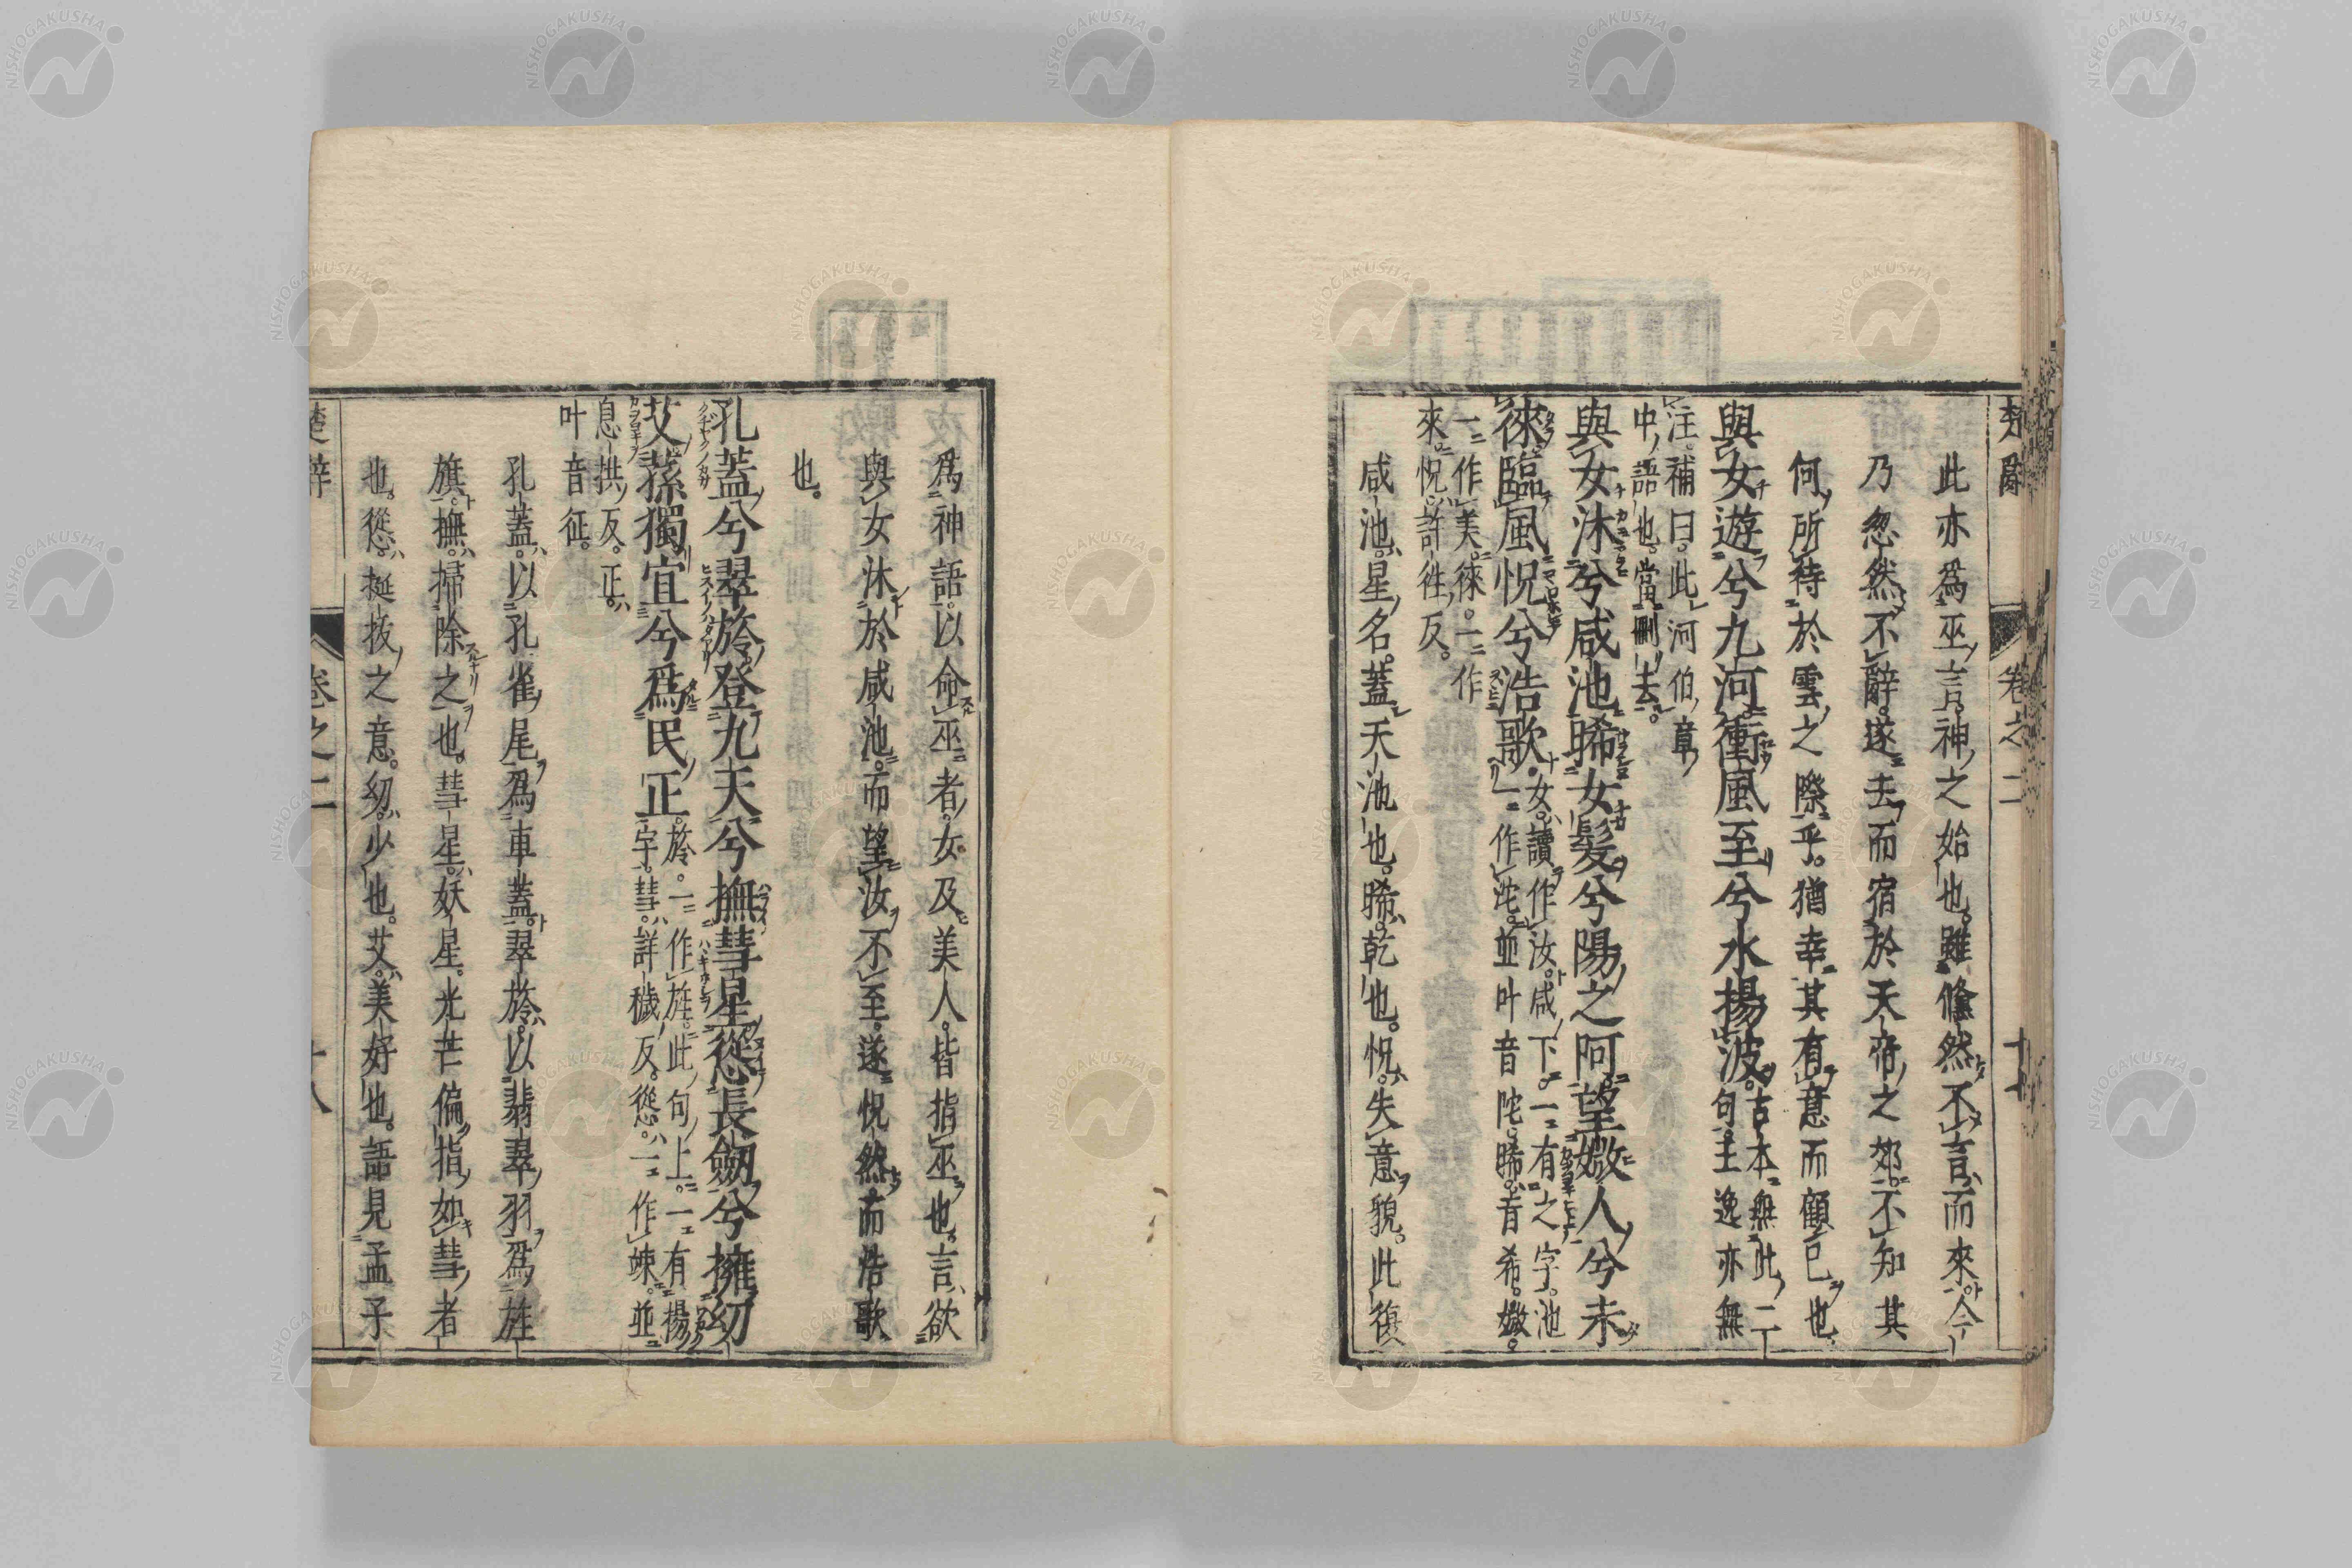 楚辭 卷之二 十七
此亦爲巫言神之始也雖儵然不言而來今
乃忽然不辭遂去而宿於天帝之郊不知其
何所待於雲之際乎猶幸其有意而顧已也
與女遊兮九河衝風至兮水揚波古本無此二
句王逸亦無
注補曰此河伯章
中語也當刪去
與女沐兮咸池晞女髮兮陽之阿望媺人兮未
徠臨風怳兮浩歌女讀作汝咸下一有之字池
一作沱並叶音陀晞音希媺
一作美徠一作
來怳許往反
咸池星名蓋天池也晞乾也怳失意貌此復
爲神語以命巫者女及美人皆指巫也言欲
與女沐於咸池而望汝不至遂怳然而浩歌
也
孔蓋兮翠旍登九天兮撫彗星慫長劒兮擁幼
艾蓀獨宜兮爲民正旍一作旌此句上一有揚
字彗詳穢反慫一作竦並
息拱反正
叶音征
孔蓋以孔雀尾爲車蓋翠旍以翡翠羽爲旌
旗撫掃除之也彗星妖星光芒偏指如彗者
也慫挺拔之意幼少也艾美好也語見孟子
楚辭 卷之二 十八
NISHOGAKUSHA